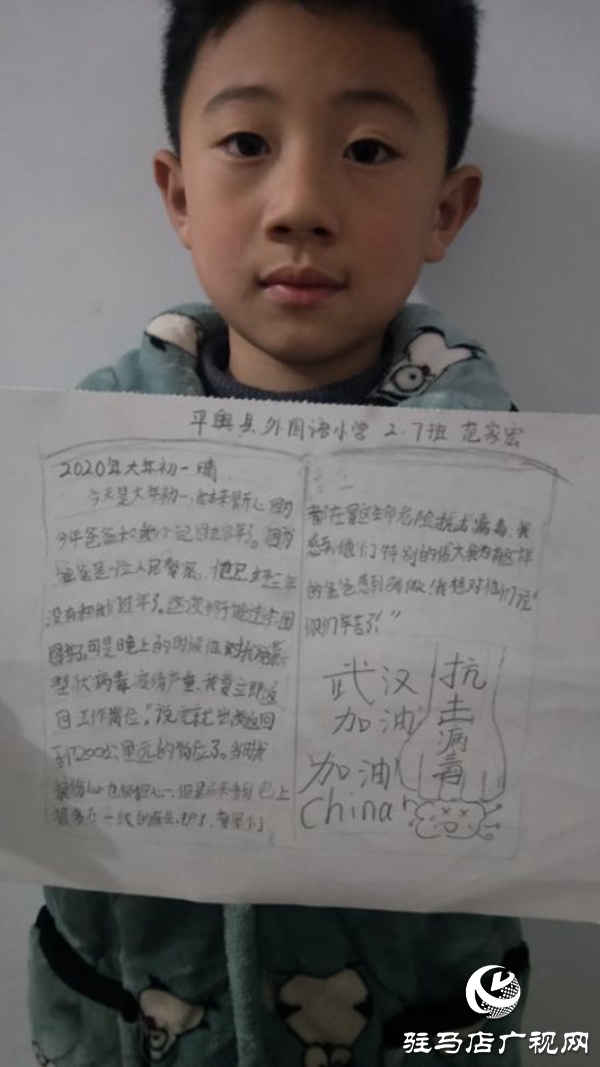 平舆县外国语小学 2.7班 范家宏
2020年大年初一 晴
今天是大年初一,我非常开心因为
今年爸爸和我们一起回家过年了。因为
爸爸是一位人民警察,他已经三年
没有和我们过年了。这次终于能过个团
圆年了。可是晚上的时候他说
型状病毒疫情严重,我要立即返
回工作岗位。"说完就出发返回
到1200公里远的岗位了。当时我
很伤心也很担心,但是
很多在一线的医生、护士、警察们
都在冒这生命危险抗击病毒,我
感到他们特别的伟大我为有这样
的爸爸感到骄傲!我想对他们说"
你们辛苦了!"
武汉
加油
加油
China
抗
击
病
毒
驻马店广视网